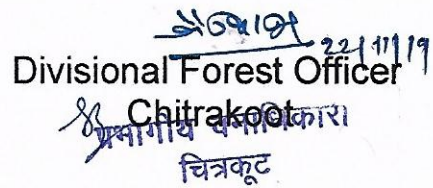 22/11/19
Divisional Forest Officer
Chitrakoot
प्रभागीय वनाधिकारी
चित्रकूट